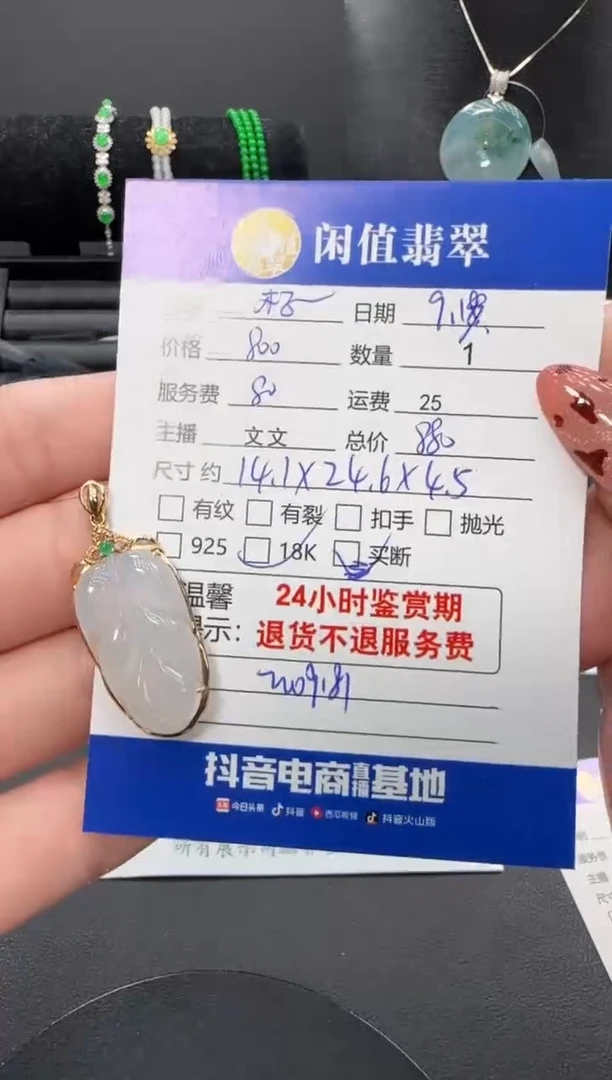 闲值翡翠
日期
价格 800 数量 1
服务费 80 运费 25
主播 文文 总价 880
尺寸 约 14.1X24.6X4.5
有纹 有裂 扣手 抛光
925 18K 买断
温馨 24小时鉴赏期
提示: 退货不退服务费
抖音电商直播基地
今日头条 抖音 西瓜视频 抖音火山版